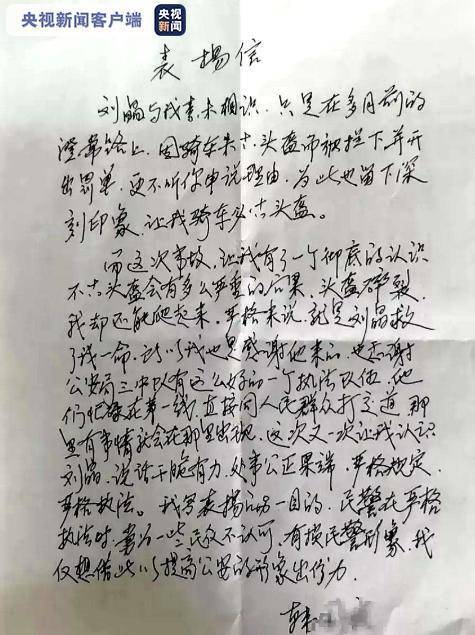 央视新闻客户端
央视
新闻
表扬信
刘晶与我素未相识，只是在多月前的
路上，因骑车未戴头盔而被拦下并开
出罚单，更不听你申说理由，为此也留下深
刻印象，让我骑车必戴头盔。
而这次事故，让我有了一个彻底的认识
不戴头盔会有多么严重的后果，头盔碎裂，
我却还能爬起来，严格来说，就是刘晶救
了我一命，所以我也是感谢他来的，也感谢
公安局三中队有这么好的一个执法队伍，他
们忙碌在第一线，直接同人民群众打交道，那
里有事情就会在那里出现，这次又一次让我认识
刘晶，说话干脆有力，处事公正果端，严格规定，
严格执法。我写表扬信另一目的，民警在严格
执法时，常为一些民众不认可，有损民警形象，我
仅想借此以提高公安的形象出份力。
韩